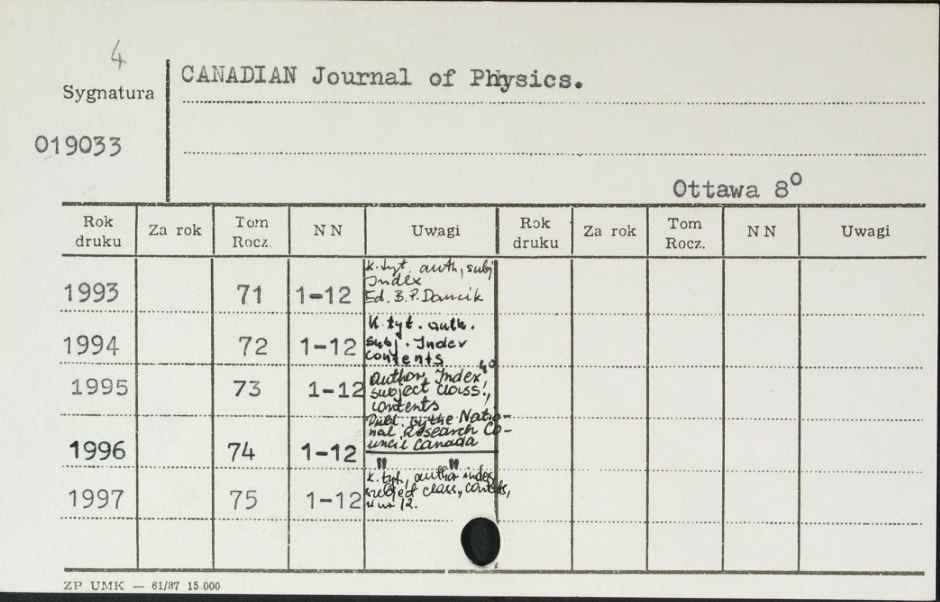 4
Sygnatura
CANADIAN Journal of Physics.
019033
Ottawa 8°
Rok druku Za rok Tom Rocz. NN Uwagi Rok druku Za rok Tom Rocz. NN Uwagi
k. tyt. auth, subj
Index
1993 71 1-12 Ed. B. P. Dancik
K tyt. auth.
1994 72 1-12 subj. Index
contents
4°
Author Index,
1995 73 1-12 subject class.,
contents
Publ. by the Natio-
nal Research Co-
1996 74 1-12 uncil Canada
" "
k. tyt., author index
1997 75 1-12 subject class, contents,
12.
ZP UMK — 61/87 15 000